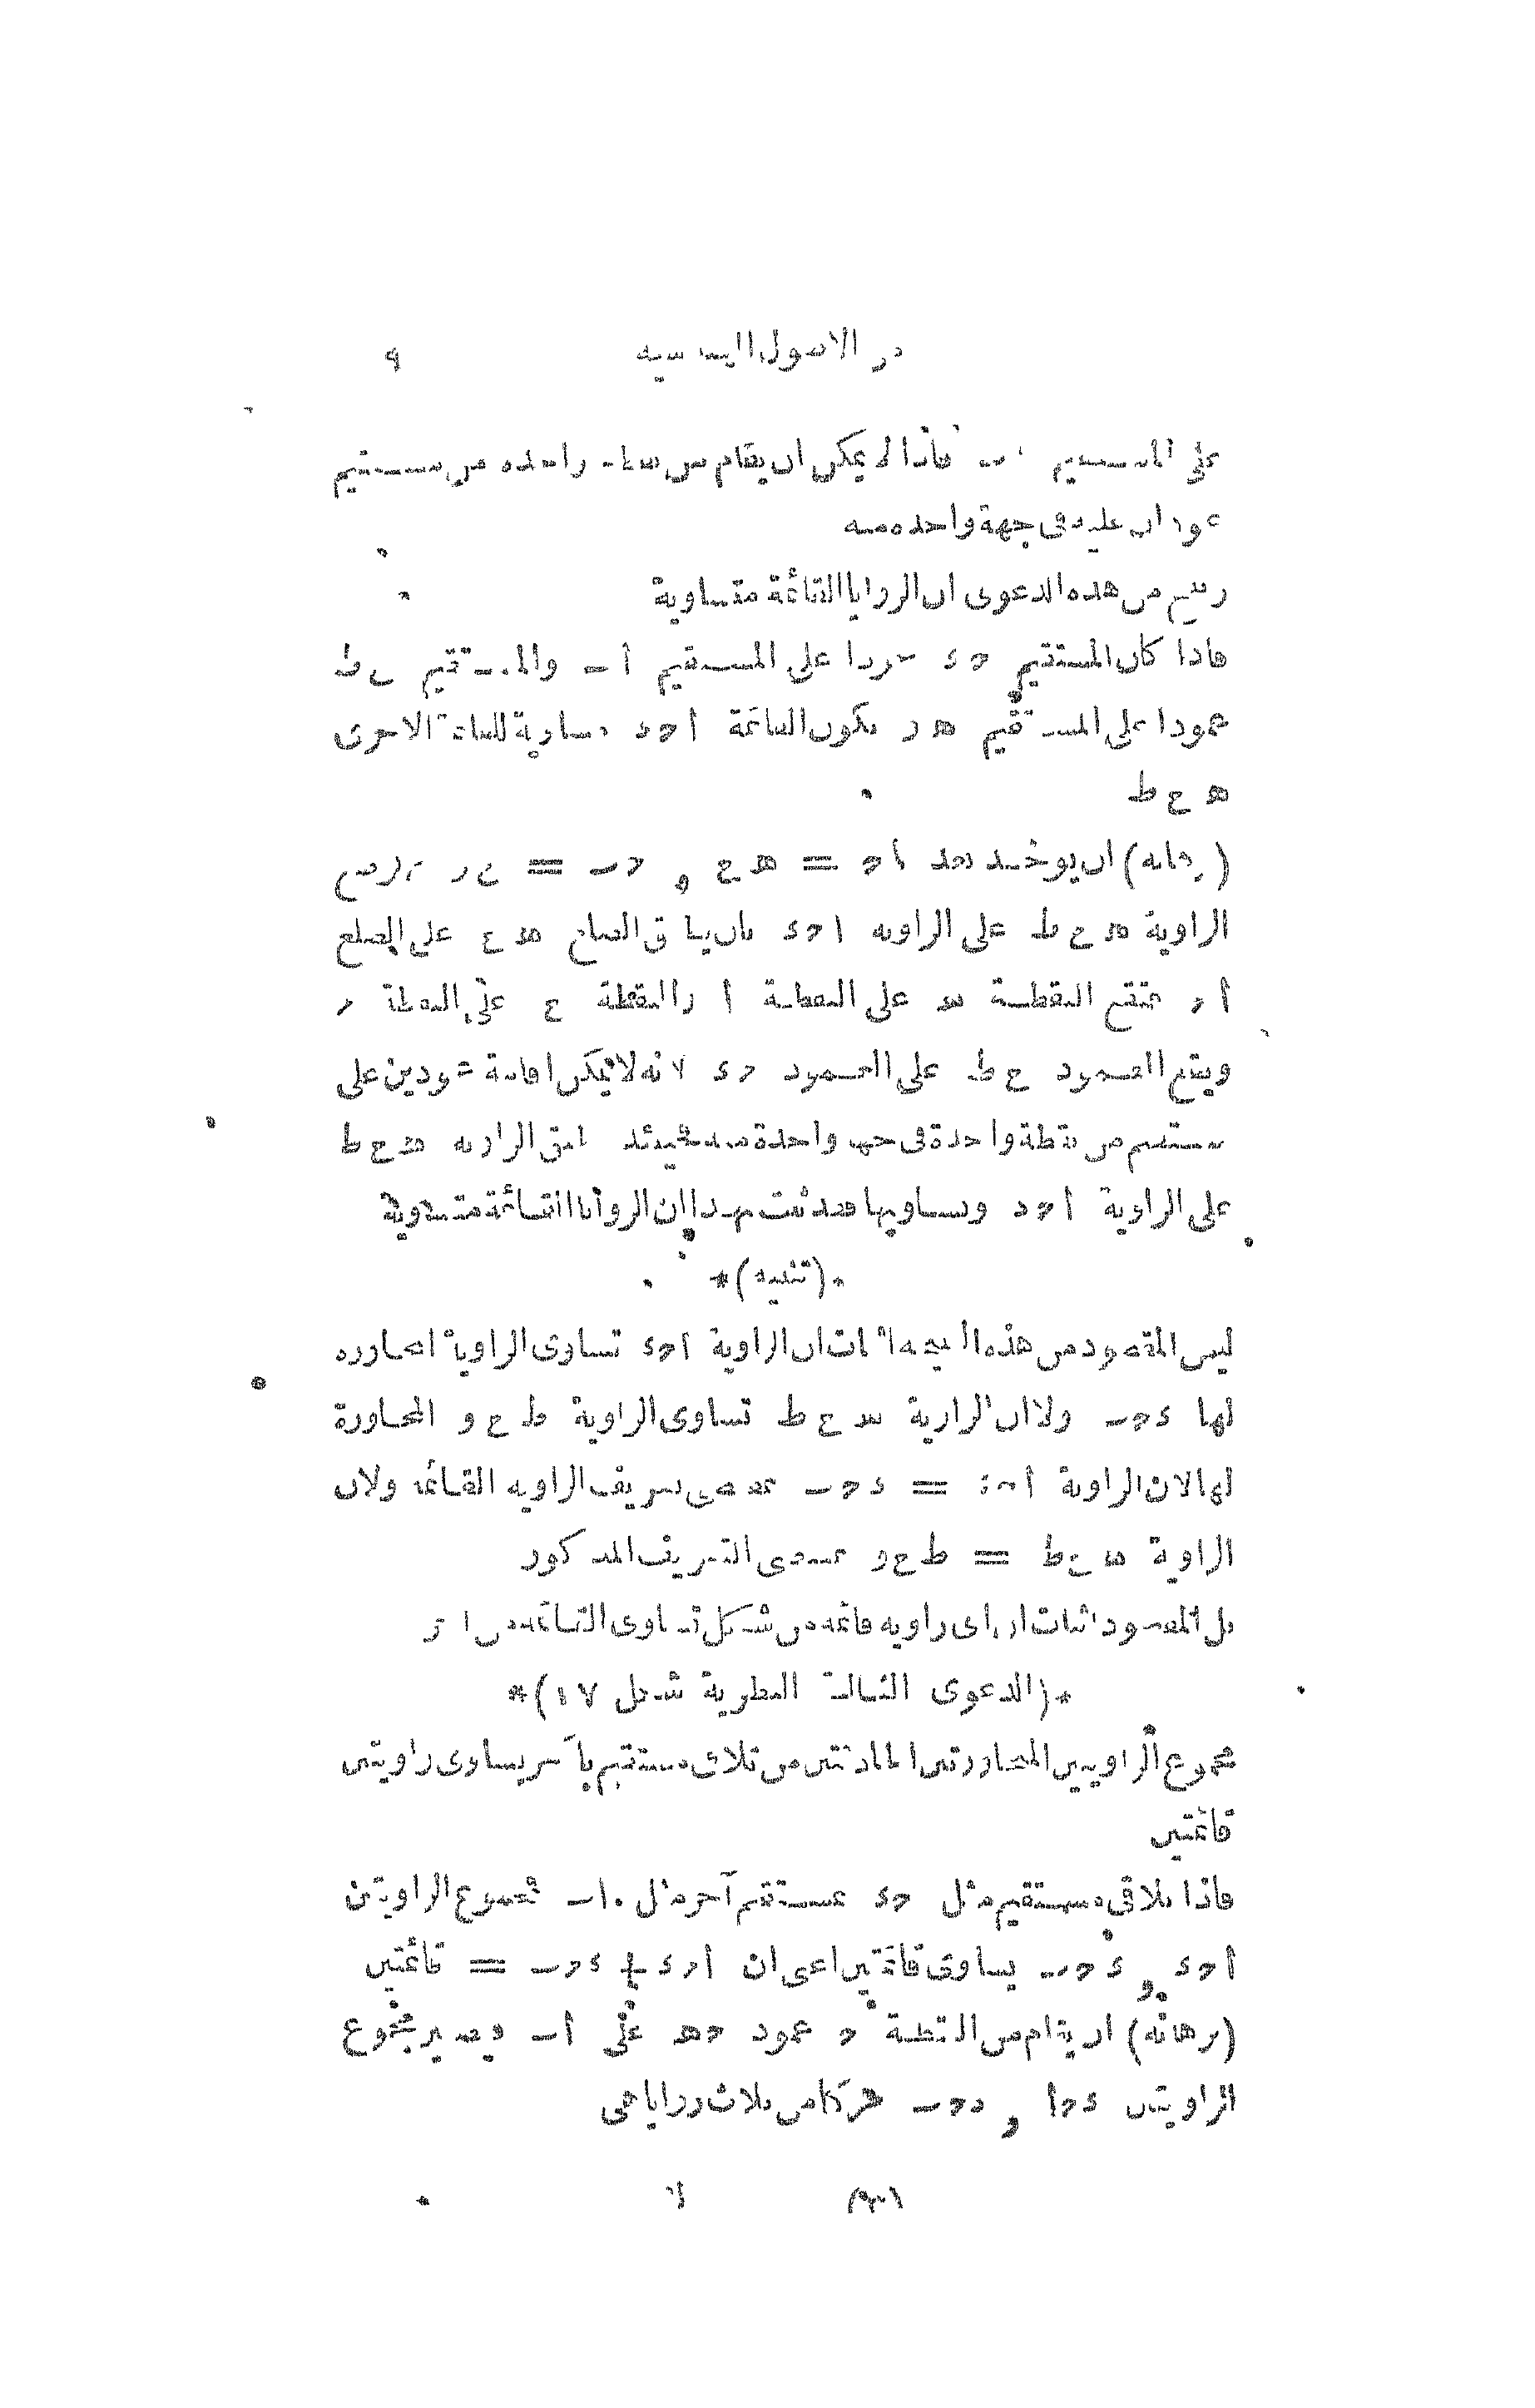 في الاصول الهندسية ٩
على المستقيم اب فاذا لا يمكن ان يقام من نقطة واحدة من مستقيم
عودان عليه فى جهة واحدة منه
وينتج من هذه الدعوى ان الزوايا القائمة متساوية
فاذا كان المستقيم حد عمودا على المستقيم أب والمستقيم ح ط
عمودا على المستقيم هـ و تكون القائمة أحد مساوية للقائمة الاخرى
هـ ح ط
(برهانه) ان يوخذ بعد أح = هـ ح و حب = ح و
الزاوية هـ ح ط على الزاوية احد بان يطابق الضلع هـ ح على الضلع
أح فتقع النقطة هـ على النقطة أ والنقطة ح على النقطة ح
ويقع العمود ح ط على العمود حد لانه لا يمكن اقامة عمودين على
مستقيم من نقطة واحدة فى جهة واحدة منه فحينئذ الزاوية هـ ح ط
على الزاوية أحد وتساويها فقد ثبت بهذا ان الزوايا القائمة متساوية
*(تنبيه)*
ليس المقصود من هذه النتيجة اثبات ان الزاوية أحد تساوى الزاوية المجاورة
لها دحب ولا ان الزاوية هـ ح ط تساوى الزاوية ط ح و المجاورة
لها لان الزاوية أحد = دحب بمقتضى تعريف الزاوية القائمة ولان
الزاوية هـ ح ط = ط ح و بمقتضى التعريف المذكور
بل المقصود اثبات ان اى زاوية قائمة من شكل تساوى القائمة من اخر
*(الدعوى الثالثة النظرية شكل ١٧)*
مجموع الزاويتين المتجاورتين الحادثتين من تلاقى مستقيم بآخر يساوى زاويتين
قائمتين
فاذا تلاقى مستقيم مثل حد بمستقيم آخر مثل اب فمجموع الزاويتين
أحد و دحب يساوى قائمتين اعنى ان أحد + دحب = قائمتين
(برهانه) ان يقام من النقطة ح عمود حهـ على أب فيصير مجموع
الزاويتين دحأ و دحب مركبا من ثلاث زوايا هى